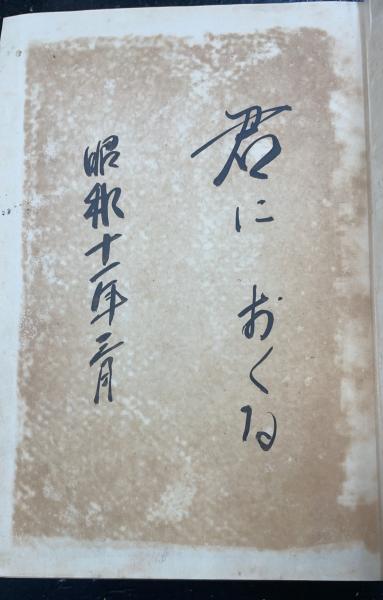 君に おくる
昭和十一年三月